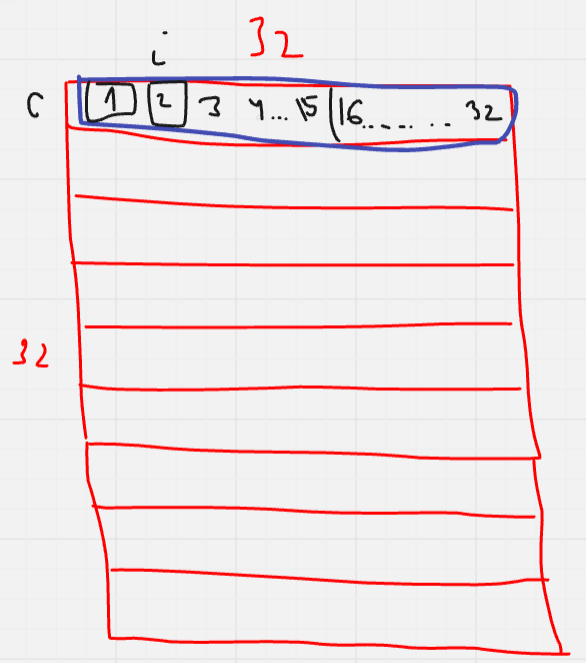 i 32
C 1 2 3 4...15 16....... 32
32